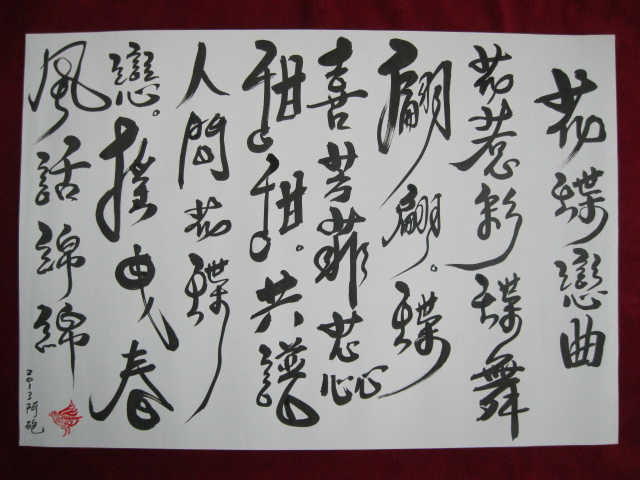 花蝶戀曲
花惹彩蝶舞
翩翩。蝶
喜芳菲蕊
甜甜。共譜
人間花蝶
戀。搖曳春
風話綿綿
2013阿砲